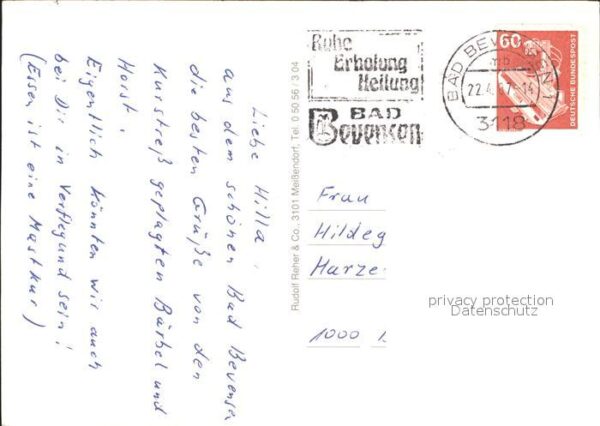 Liebe Hilla,
aus dem schönen Bad Bevensen
die besten Grüße von den
Kurstreß geplagten Bärbel und
Horst.
Eigentlich könnten wir auch
bei Dir in Verflegund sein!
(Essen ist eine Mastkur)
Rudolf Reher & Co., 3101 Meißendorf, Tel. 0 50 56 / 3 04
Ruhe
Erholung
Heilung
BAD
Bevensen
BAD BEVENSEN 1
mb
22.4.87-14
3118
60
DEUTSCHE BUNDESPOST
Frau
Hildeg
Harze
1000
privacy protection
Datenschutz